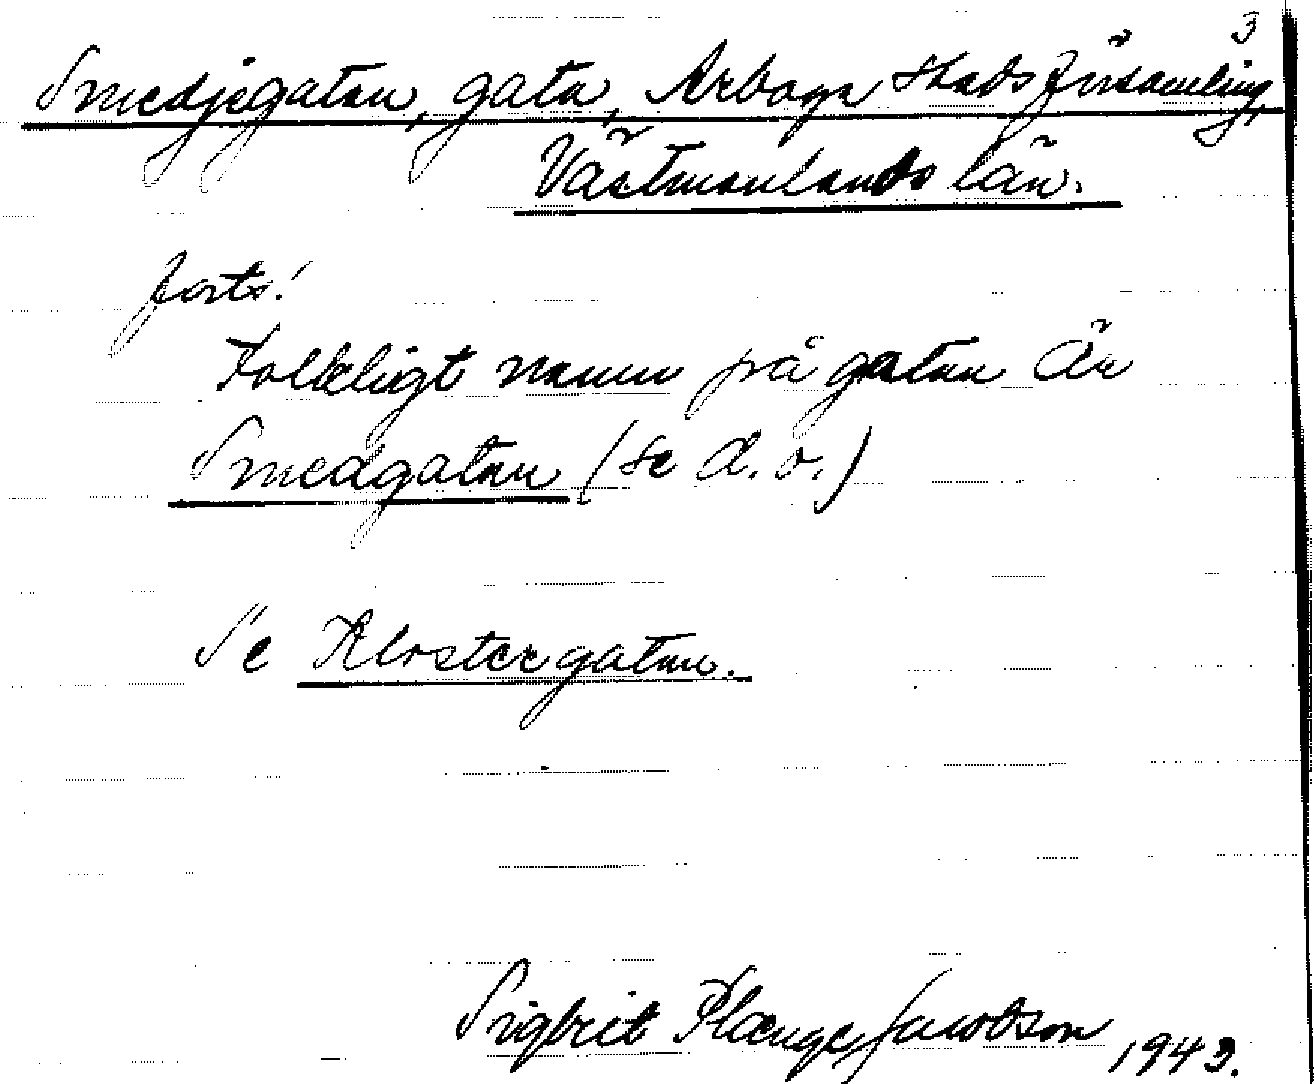 3
Smedjegatan, gata, Arboga stadsförsamling,
Västmanlands län.
forts.
Folkligt namn på gatan är
Smedgatan (se d. o.)
Se Klostergatan.
Sigbrit Plænge Jacobson 1943.